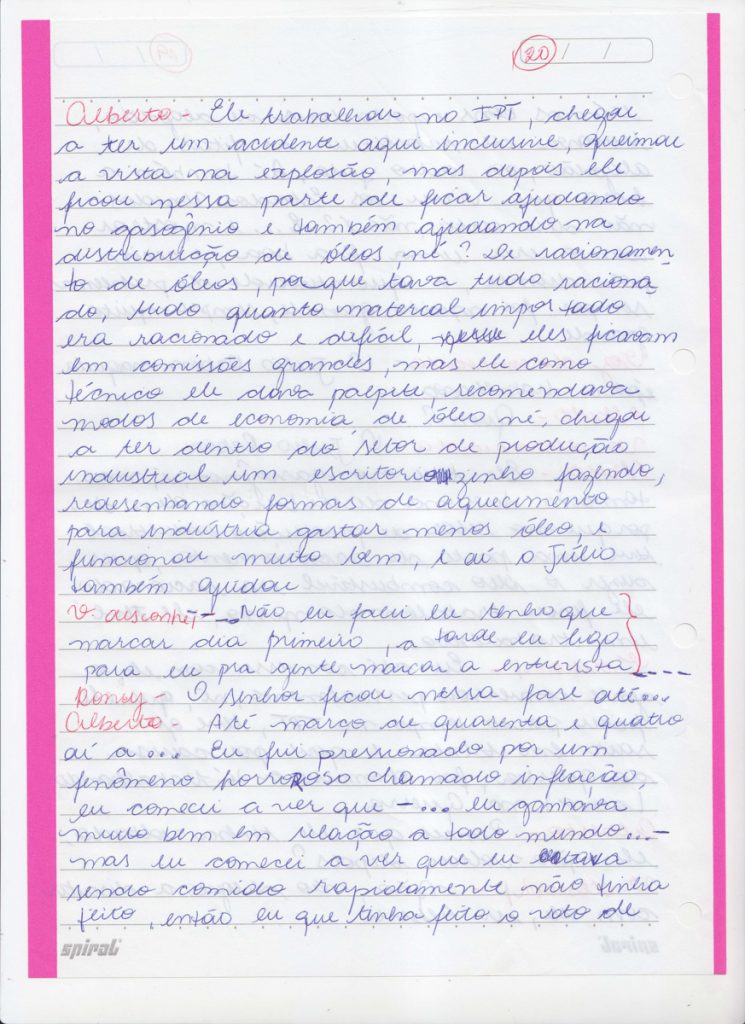 20 / /
Alberto - Ele trabalhou no IPT, chegou
a ter um acidente aqui inclusive, queimou
a vista na explosão, mas depois ele
ficou nessa parte de ficar ajudando
no gasogênio e também ajudando na
distribuição de óleos, né? De racionamen
to de óleos, porque tava tudo raciona
do, tudo quanto material importado
era racionado e difícil, eles ficavam
em comissões grandes, mas ele como
técnico ele dava palpite, recomendava
modos de economia de óleo né, chegou
a ter dentro do setor de produção
industrial um escritoriozinho fazendo,
redesenhando formas de aquecimento
para indústria gastar menos óleo, e
funcionou muito bem, e aí o Júlio
também ajudou
- Não eu falei eu tenho que
marcar dia primeiro, a tarde eu ligo
para eu pra gente marcar a entrevista ----
Roney - O senhor ficou nessa fase até...
Alberto - Até março de quarenta e quatro
aí a ... Eu fui pressionado por um
fenômeno horroroso chamado inflação,
eu comecei a ver que - ... eu ganhava
muito bem em relação a todo mundo... -
mas eu comecei a ver que eu tava
sendo comido rapidamente não tinha
jeito, então eu que tinha feito o voto de
spiral